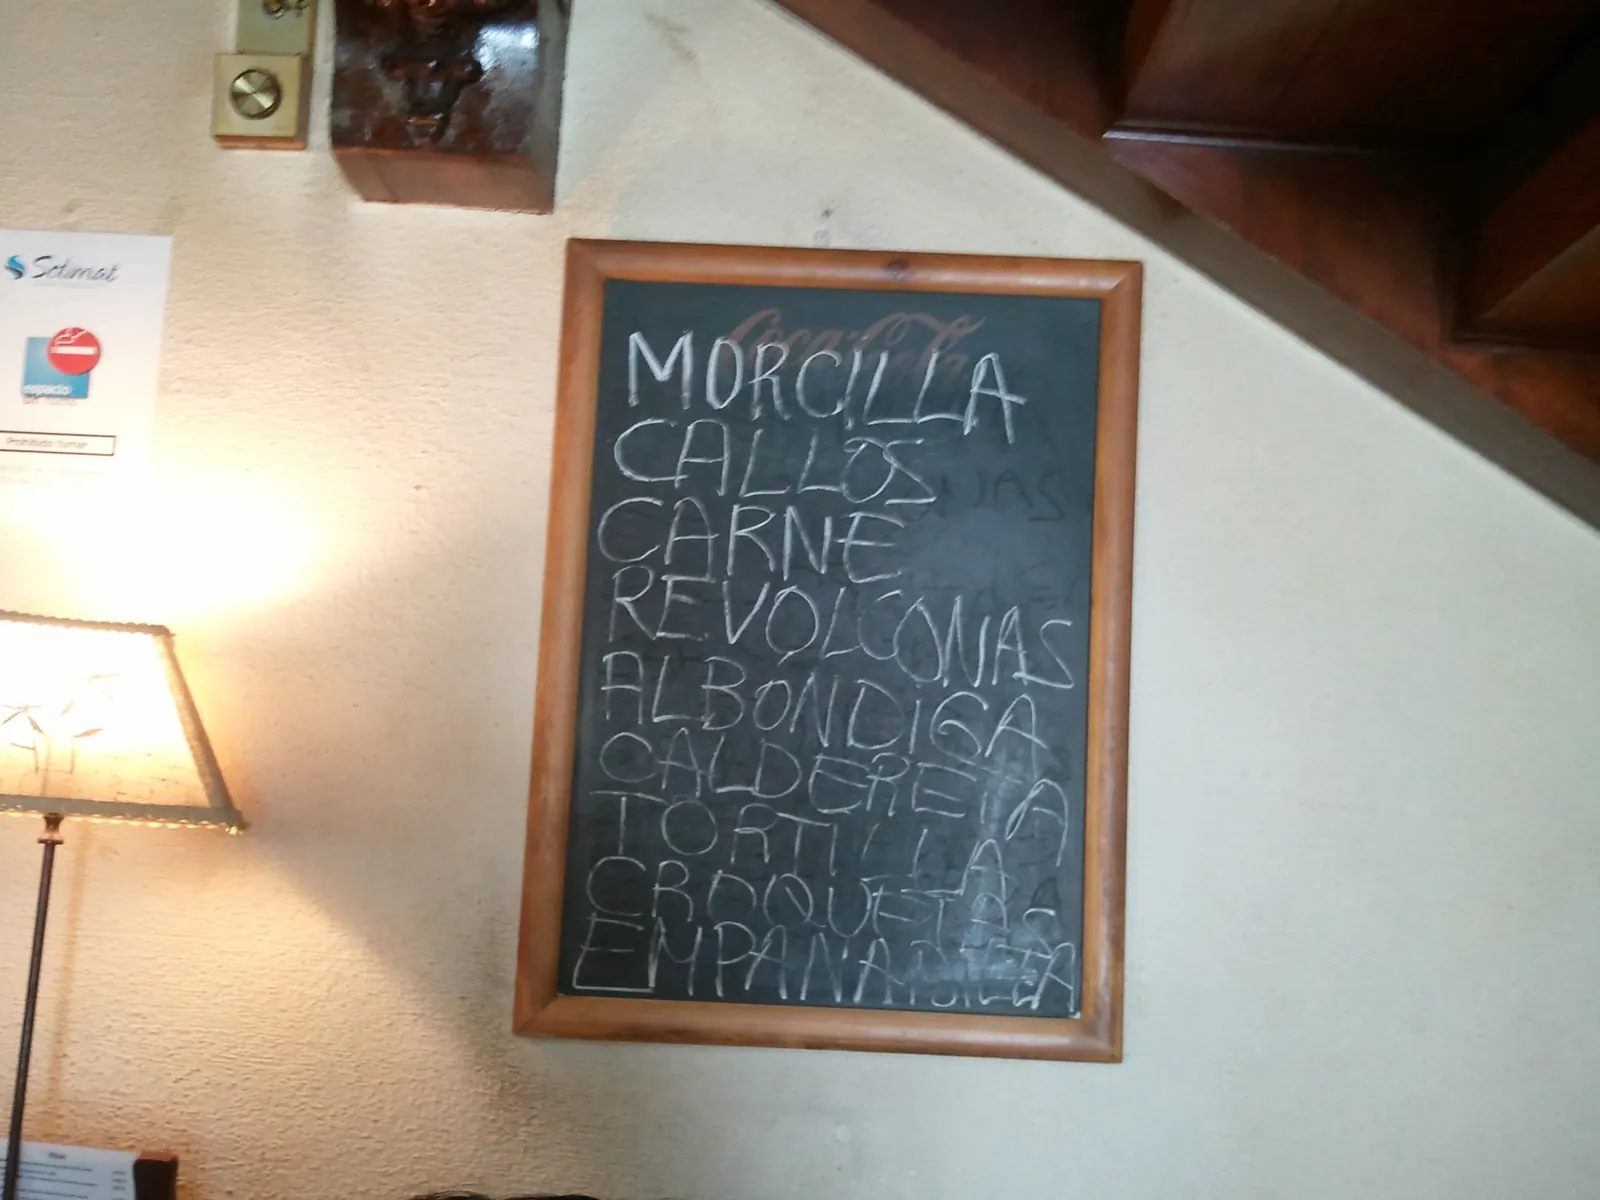 Solmat
espacio
Prohibido fumar
Coca-Cola
MORCILLA
CALLOS
CARNE
REVOLCONAS
ALBONDIGA
CALDERETA
TORTILLA
CROQUETAS
EMPANADILLA